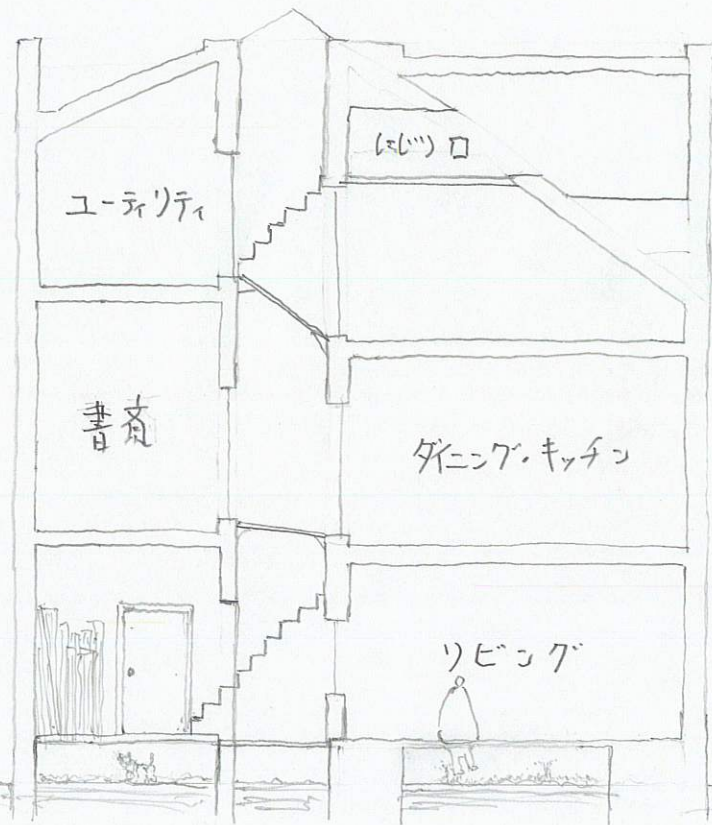 ユーティリティ
書斎
ダイニング・キッチン
リビング